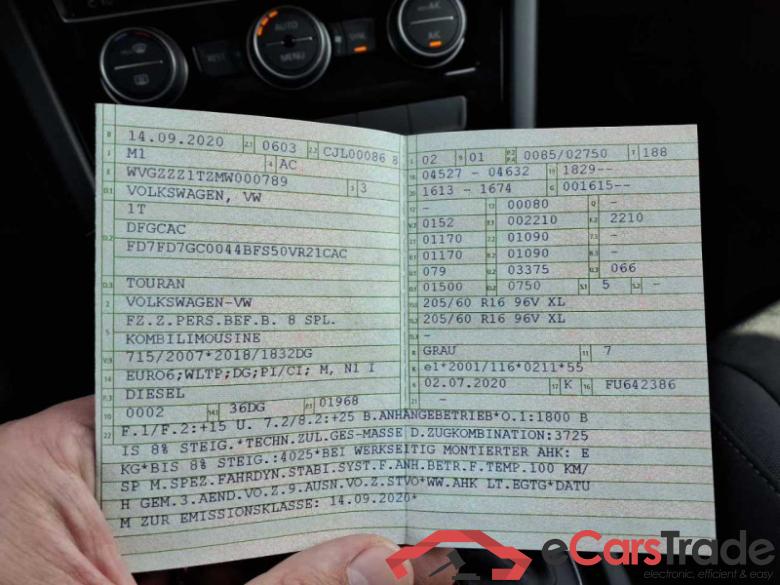 AUTO
MENU
SYNC
REST
A/C
B 14.09.2020 2.1 0603 2.2 CJL00086 8
J M1 4 AC
E WVGZZZ1TZMW000789 3 3
D.1 VOLKSWAGEN, VW
1T
D.2 DFGCAC
FD7FD7GC0044BFS50VR21CAC
D.3 TOURAN
2 VOLKSWAGEN-VW
5 FZ.Z.PERS.BEF.B. 8 SPL.
KOMBILIMOUSINE
V.9 715/2007*2018/1832DG
14 EURO6;WLTP;DG;PI/CI; M, N1 I
P.3 DIESEL
10 0002 14.1 36DG P.1 01968
L 02 9 01 P.2 P.4 0085/02750 T 188
18 04527 - 04632 19 1829--
20 1613 - 1674 G 001615--
12 - 13 00080 Q -
V.7 0152 F.1 002210 F.2 2210
7.1 01170 7.2 01090 7.3 -
8.1 01170 8.2 01090 8.3 -
U.1 079 U.2 03375 U.3 066
O.1 01500 O.2 0750 S.1 5 S.2 -
15.1 205/60 R16 96V XL
15.2 205/60 R16 96V XL
15.3 -
R GRAU 11 7
K e1*2001/116*0211*55
6 02.07.2020 17 K 16 FU642386
21 -
22 F.1/F.2:+15 U. 7.2/8.2:+25 B.ANHANGEBETRIEB*O.1:1800 B
IS 8% STEIG.*TECHN.ZUL.GES-MASSE D.ZUGKOMBINATION:3725
KG*BIS 8% STEIG.:4025*BEI WERKSEITIG MONTIERTER AHK: E
SP M.SPEZ.FAHRDYN.STABI.SYST.F.ANH.BETR.F.TEMP.100 KM/
H GEM.3.AEND.VO.Z.9.AUSN.VO.Z.STVO*WW.AHK LT.EGTG*DATU
M ZUR EMISSIONSKLASSE: 14.09.2020*
eCarsTrade
electronic, efficient & easy